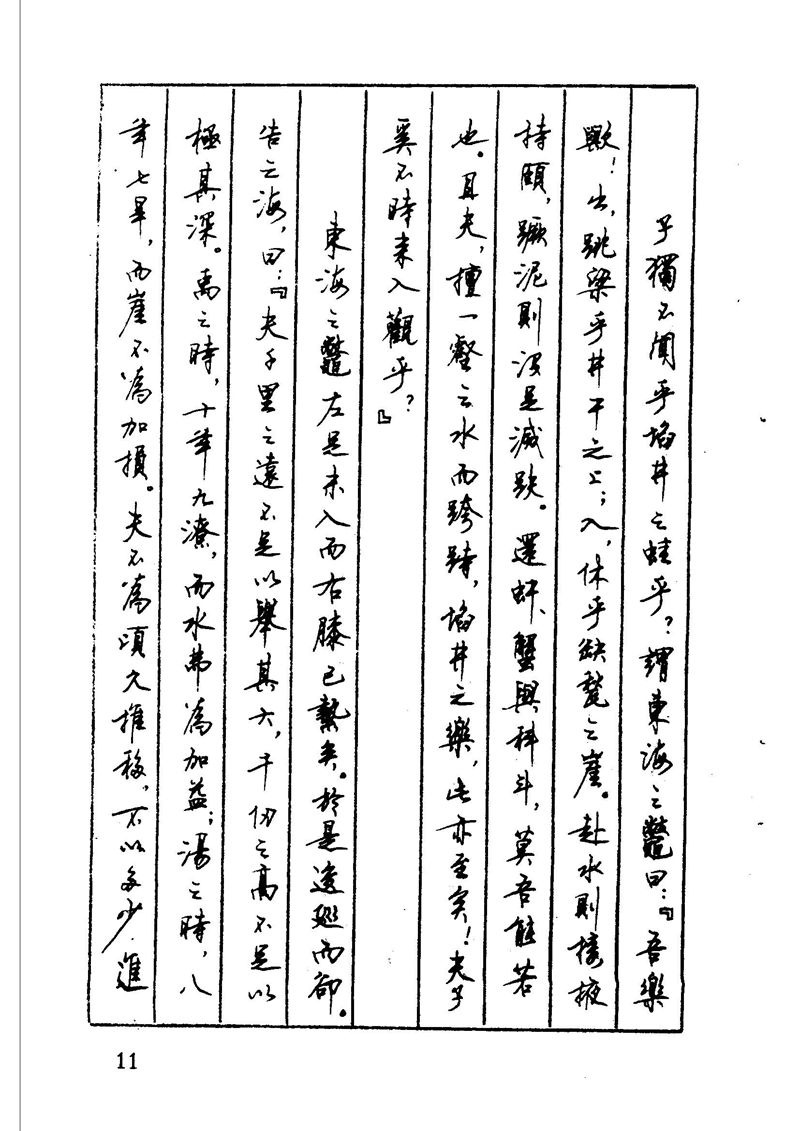 子獨不聞乎埳井之蛙乎？謂東海之鼈曰：『吾樂
歟！出，跳梁乎井干之上；入，休乎缺甃之崖。赴水則接掖
持頤，蹶泥則沒足滅跗。還虷、蟹與科斗，莫吾能若
也。且夫，擅一壑之水而跨跱，埳井之樂，此亦至矣！夫子
奚不時來入觀乎？』
東海之鼈左足未入而右膝已縶矣。於是逡巡而卻。
告之海，曰：『夫千里之遠不足以舉其大，千仞之高不足以
極其深。禹之時，十年九潦，而水弗為加益；湯之時，八
年七旱，而崖不為加損。夫不為頃久推移，不以多少進
11